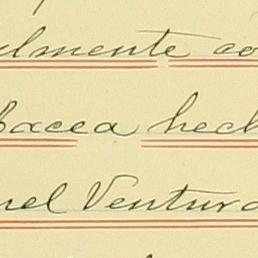 almente co
bacea hech
nel Ventura